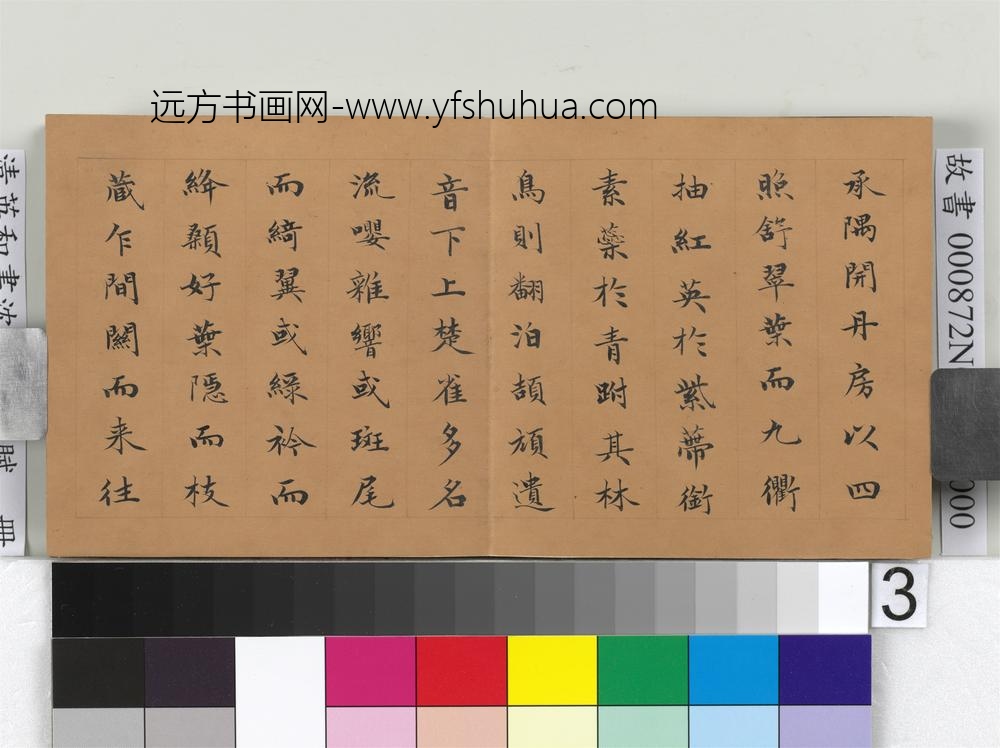 远方书画网-www.yfshuhua.com
承隅開丹房以四
照舒翠葉而九衢
抽紅英扵紫蔕銜
素蘂扵青跗其林
鳥則翻泊頡頏遺
音下上楚雀多名
流嚶雜響或斑尾
而綺翼或緑衿而
絳顙好葉隱而枝
蔵乍間關而来往
故書 000872N 000
清英和書沈 賦 冊
3